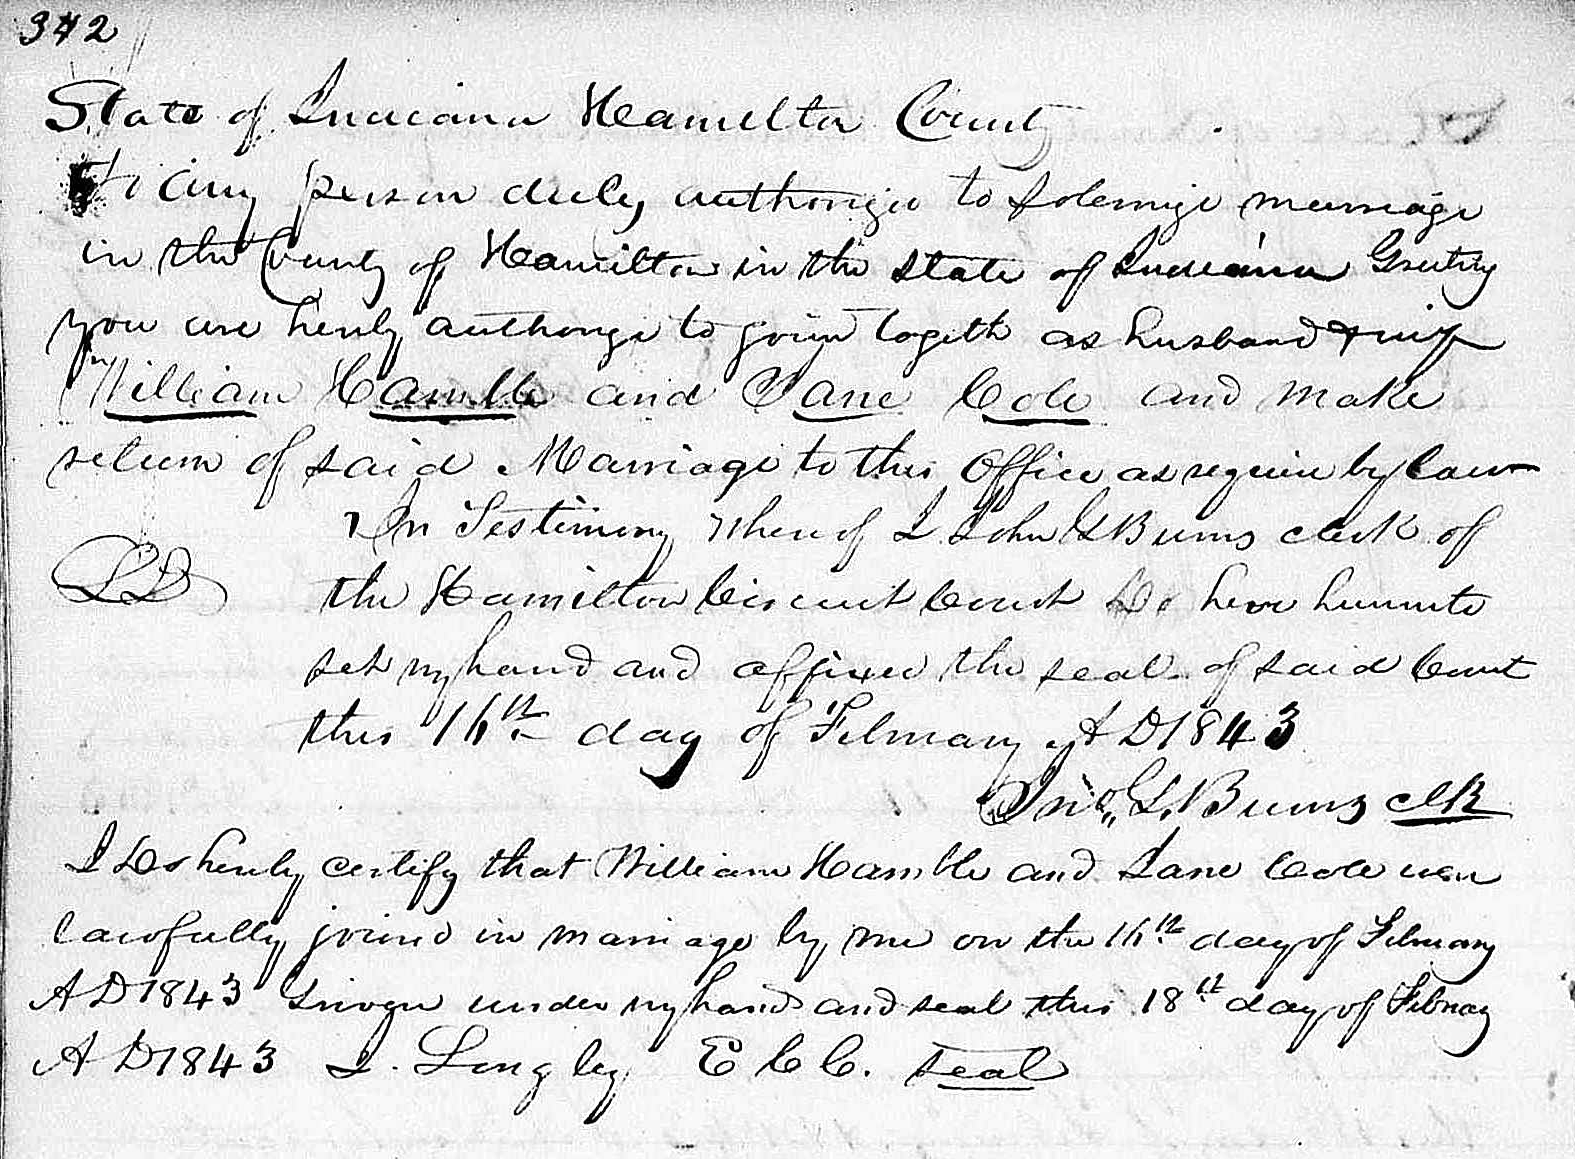 342
State of Indiana Hamilton County
To any person duly authorize to solemize marriage
in the County of Hamilton in the state of Indiana Greeting
you are herely authorize to join togeth as husband & wife
William Hamble and Jane Cole and make
return of said Marriage to this Office as require by law
In Testimony Whereof I John G Burns clerk of
the Hamilton Circuit Court Do here hereunto
set my hand and affixed the seal of said Court
this 16th day of February A D 1843
Jno. G. Burns clk
I Do herely certify that William Hamble and Jane Cole were
lawfully joined in marriage by me on the 16th day of February
A D 1843 Given under my hand and seal this 18th day of Febuay
A D 1843 Longley E C C. seal